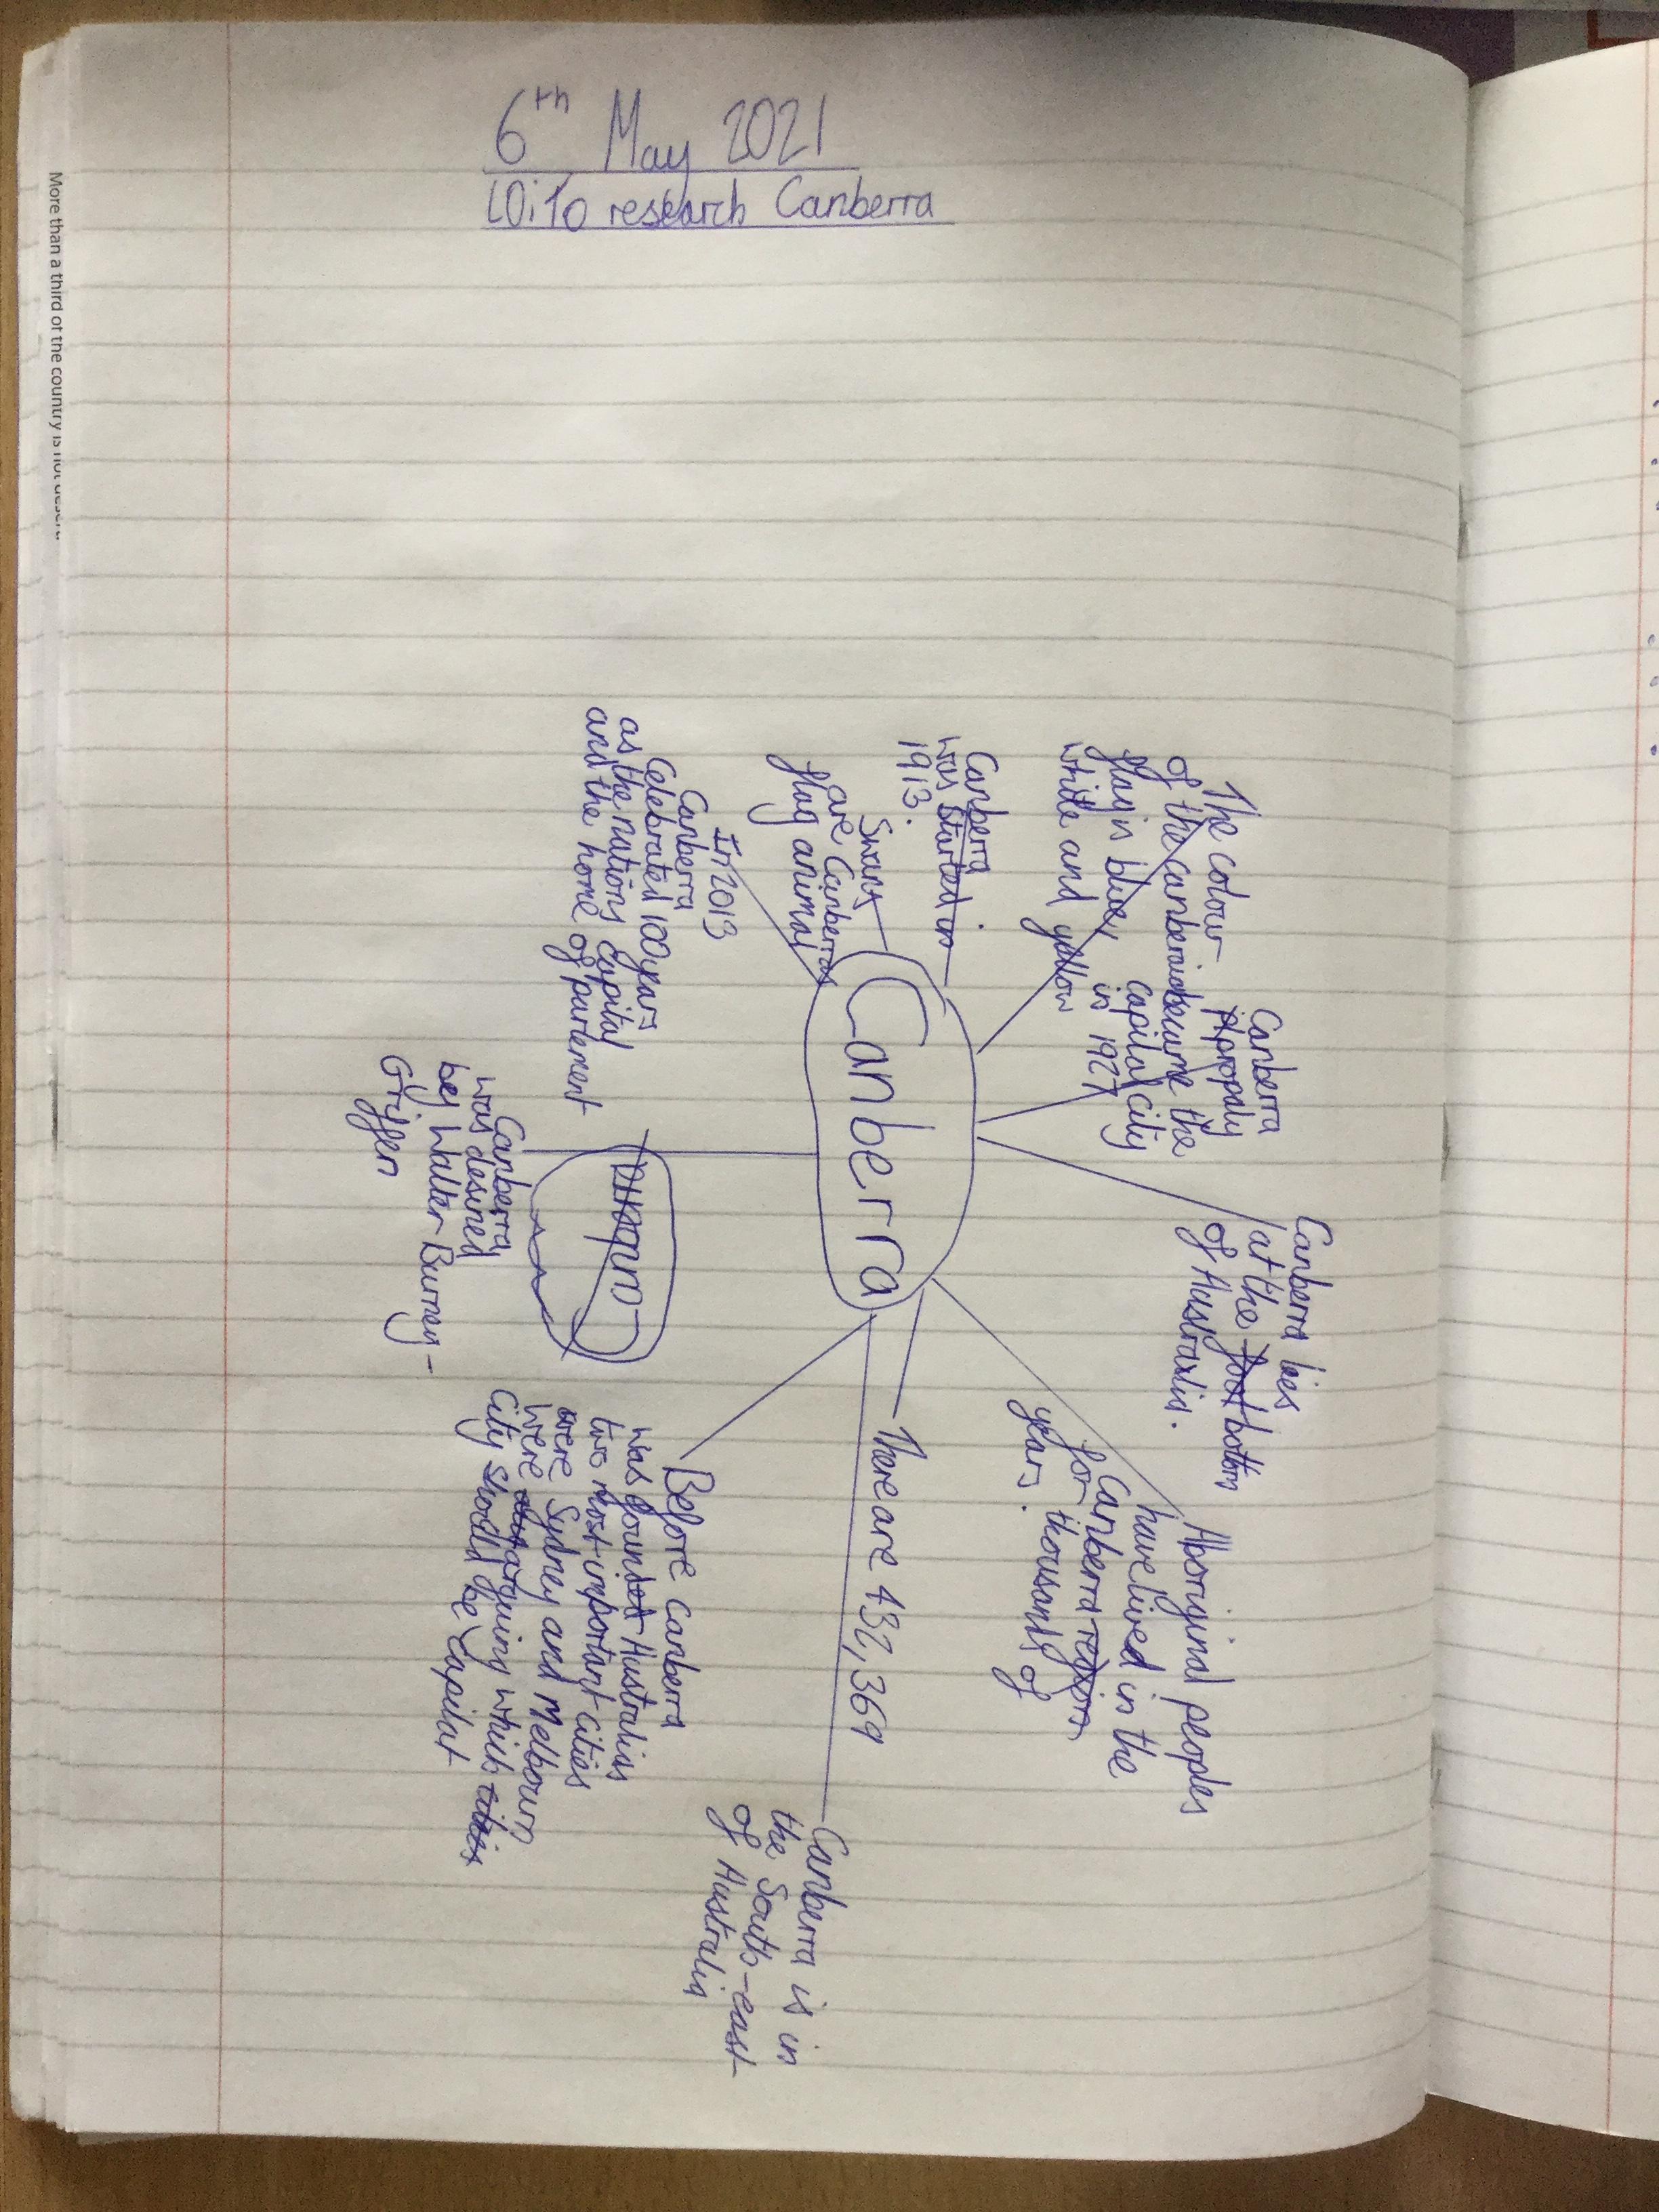 6th May 2021
LO: To research Canberra
Canberra
The colour
of the Canberra
flag is blue,
white and yellow
Canberra
properly
became the
capital city
in 1927
Canberra lies
at the bottom
of Australia.
Aboriginal peoples
have lived in the
Canberra region
for thousands of
years.
There are 432,369
Canberra is in
the South-east
of Australia
Before Canberra
was founded Australias
two most important cities
were Sydney and Melbourn
were arguing which
city should be capital
Canberra
was desined
bey Walter Burney-
Griffen
In 2013
Canberra
Celebrated 100 years
as the nations capital
and the home of parlement
Swans
are Canberras
flag animal
Canberra
was started in
1913.
More than a third of the country is not desert